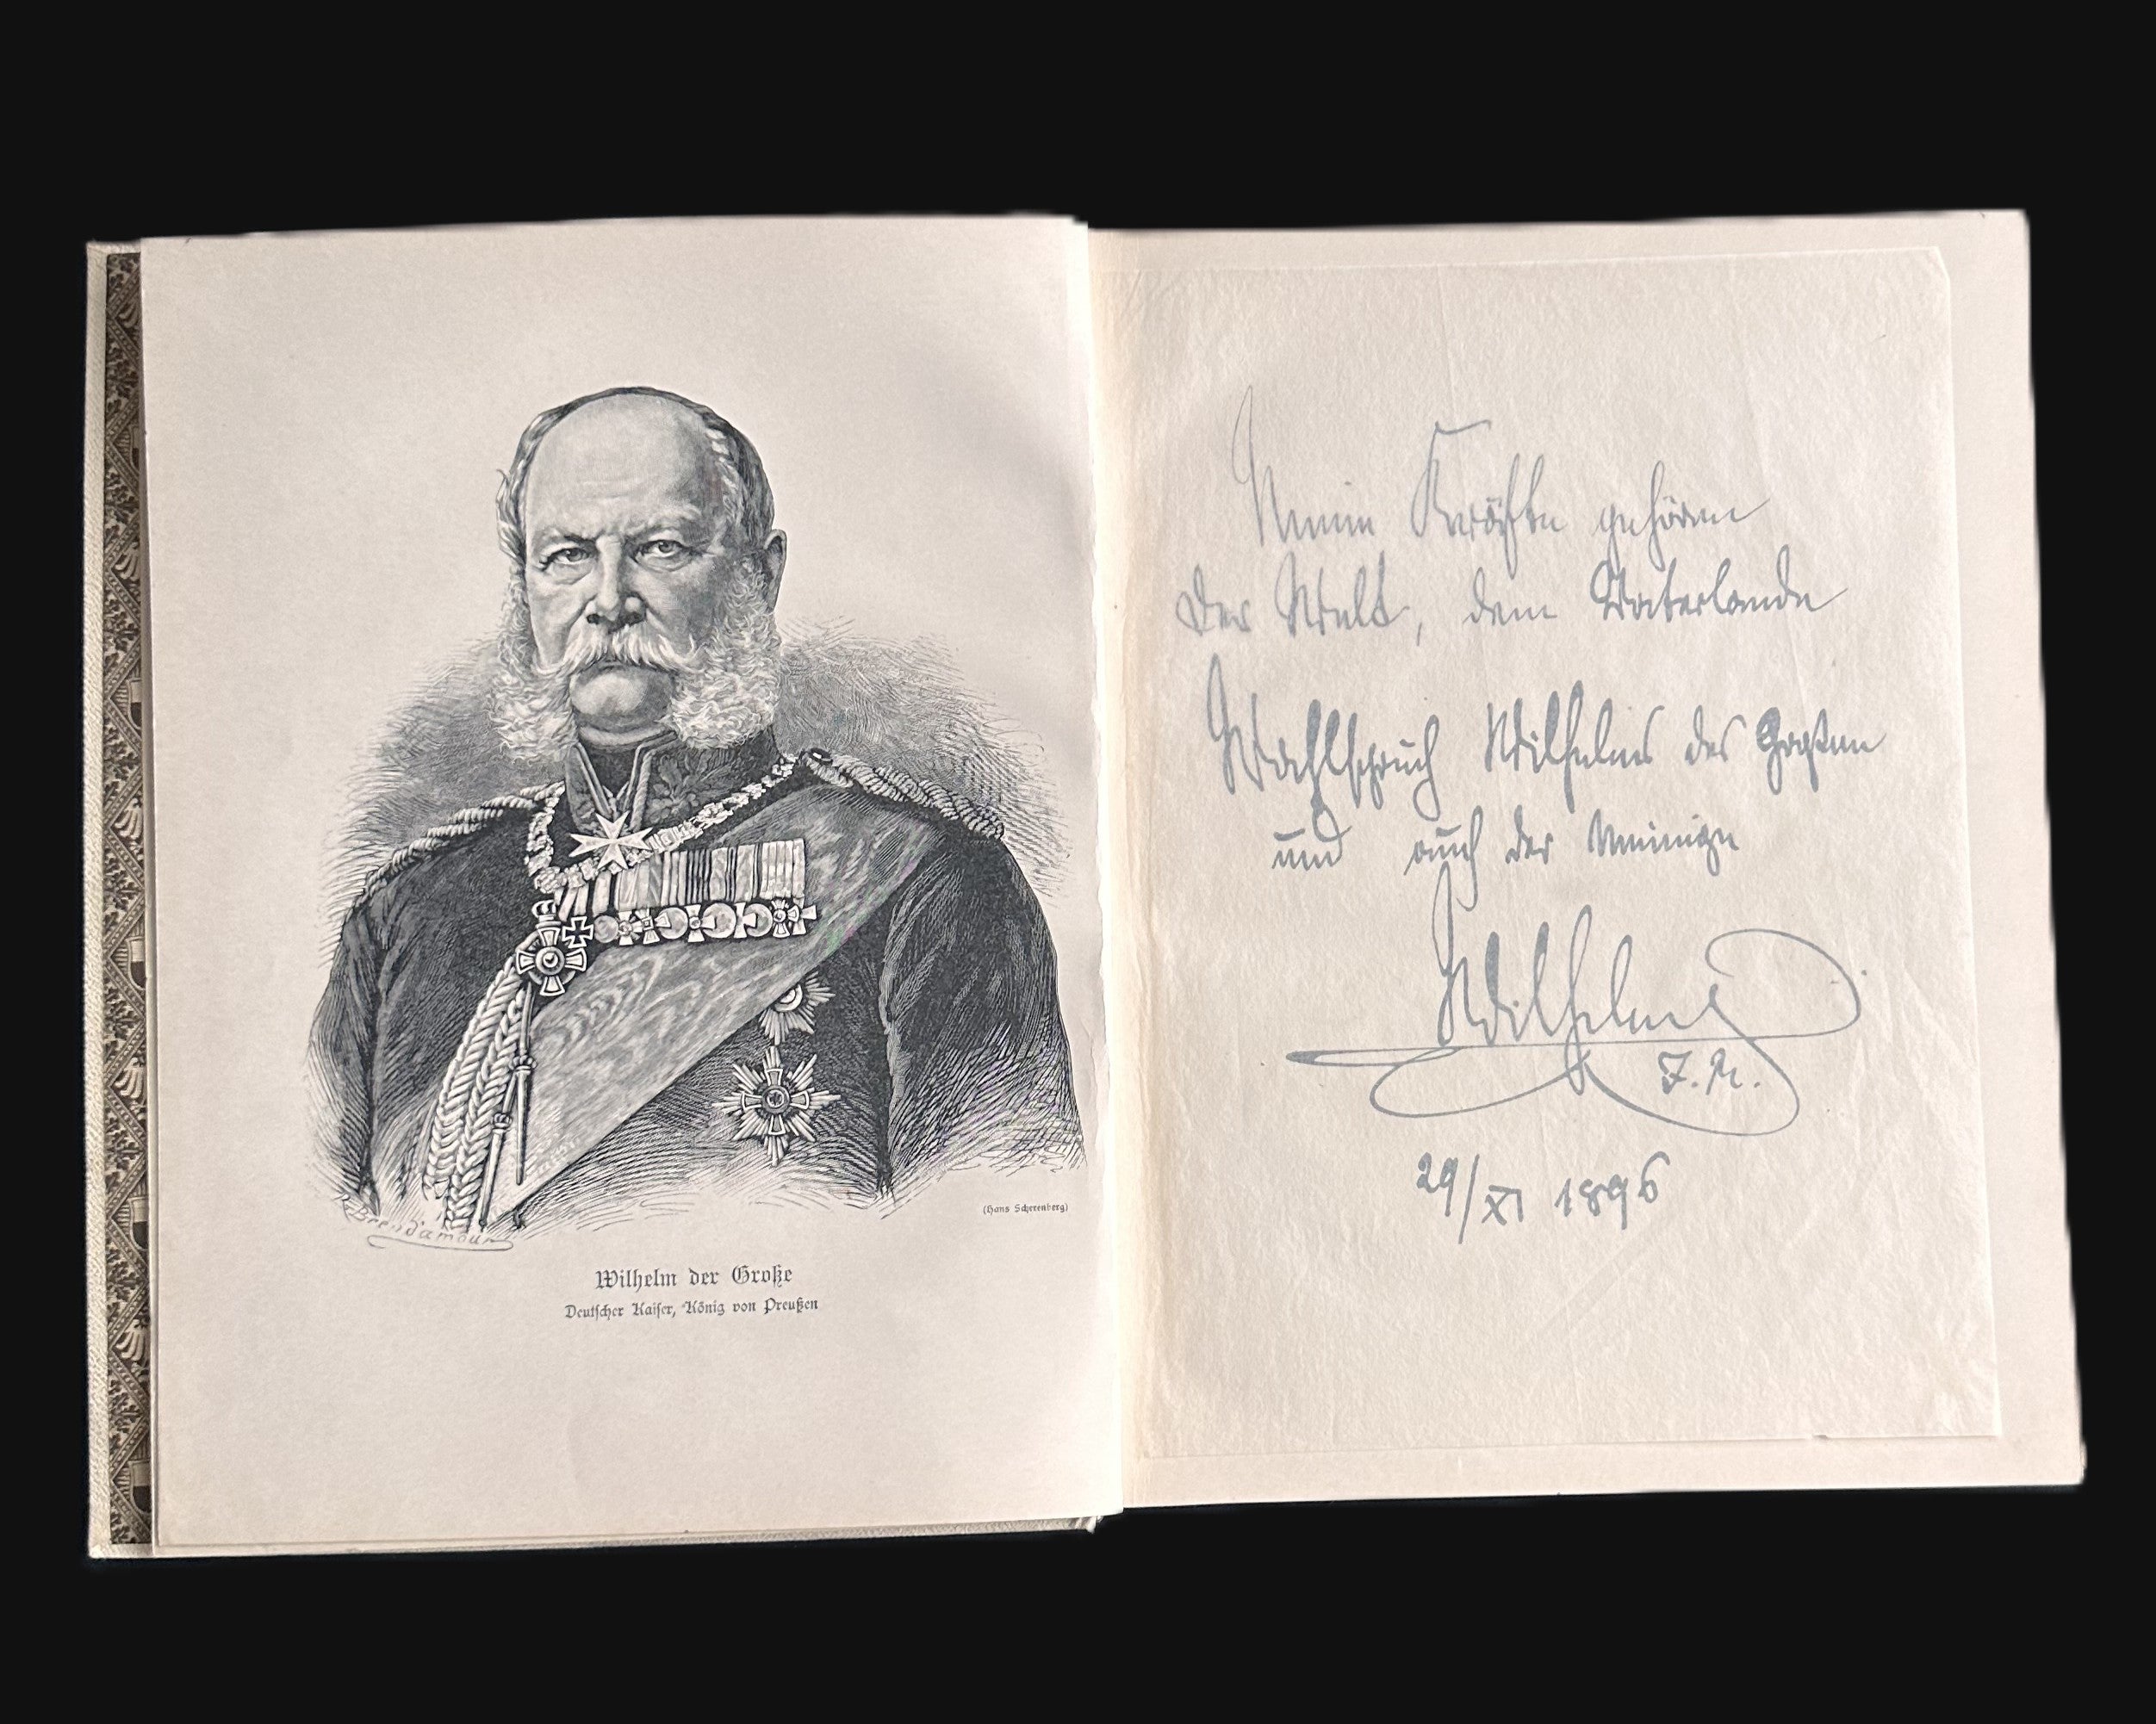 R. Brend'amour
(Hans Scherenberg)
Wilhelm der Große
Deutſcher Kaiſer, König von Preußen
Meine Kräfte gehören
der Welt, dem Vaterlande
Wahlspruch Wilhelms des Großen
und auch der Meinige
Wilhelm
I. R.
29/XI 1896